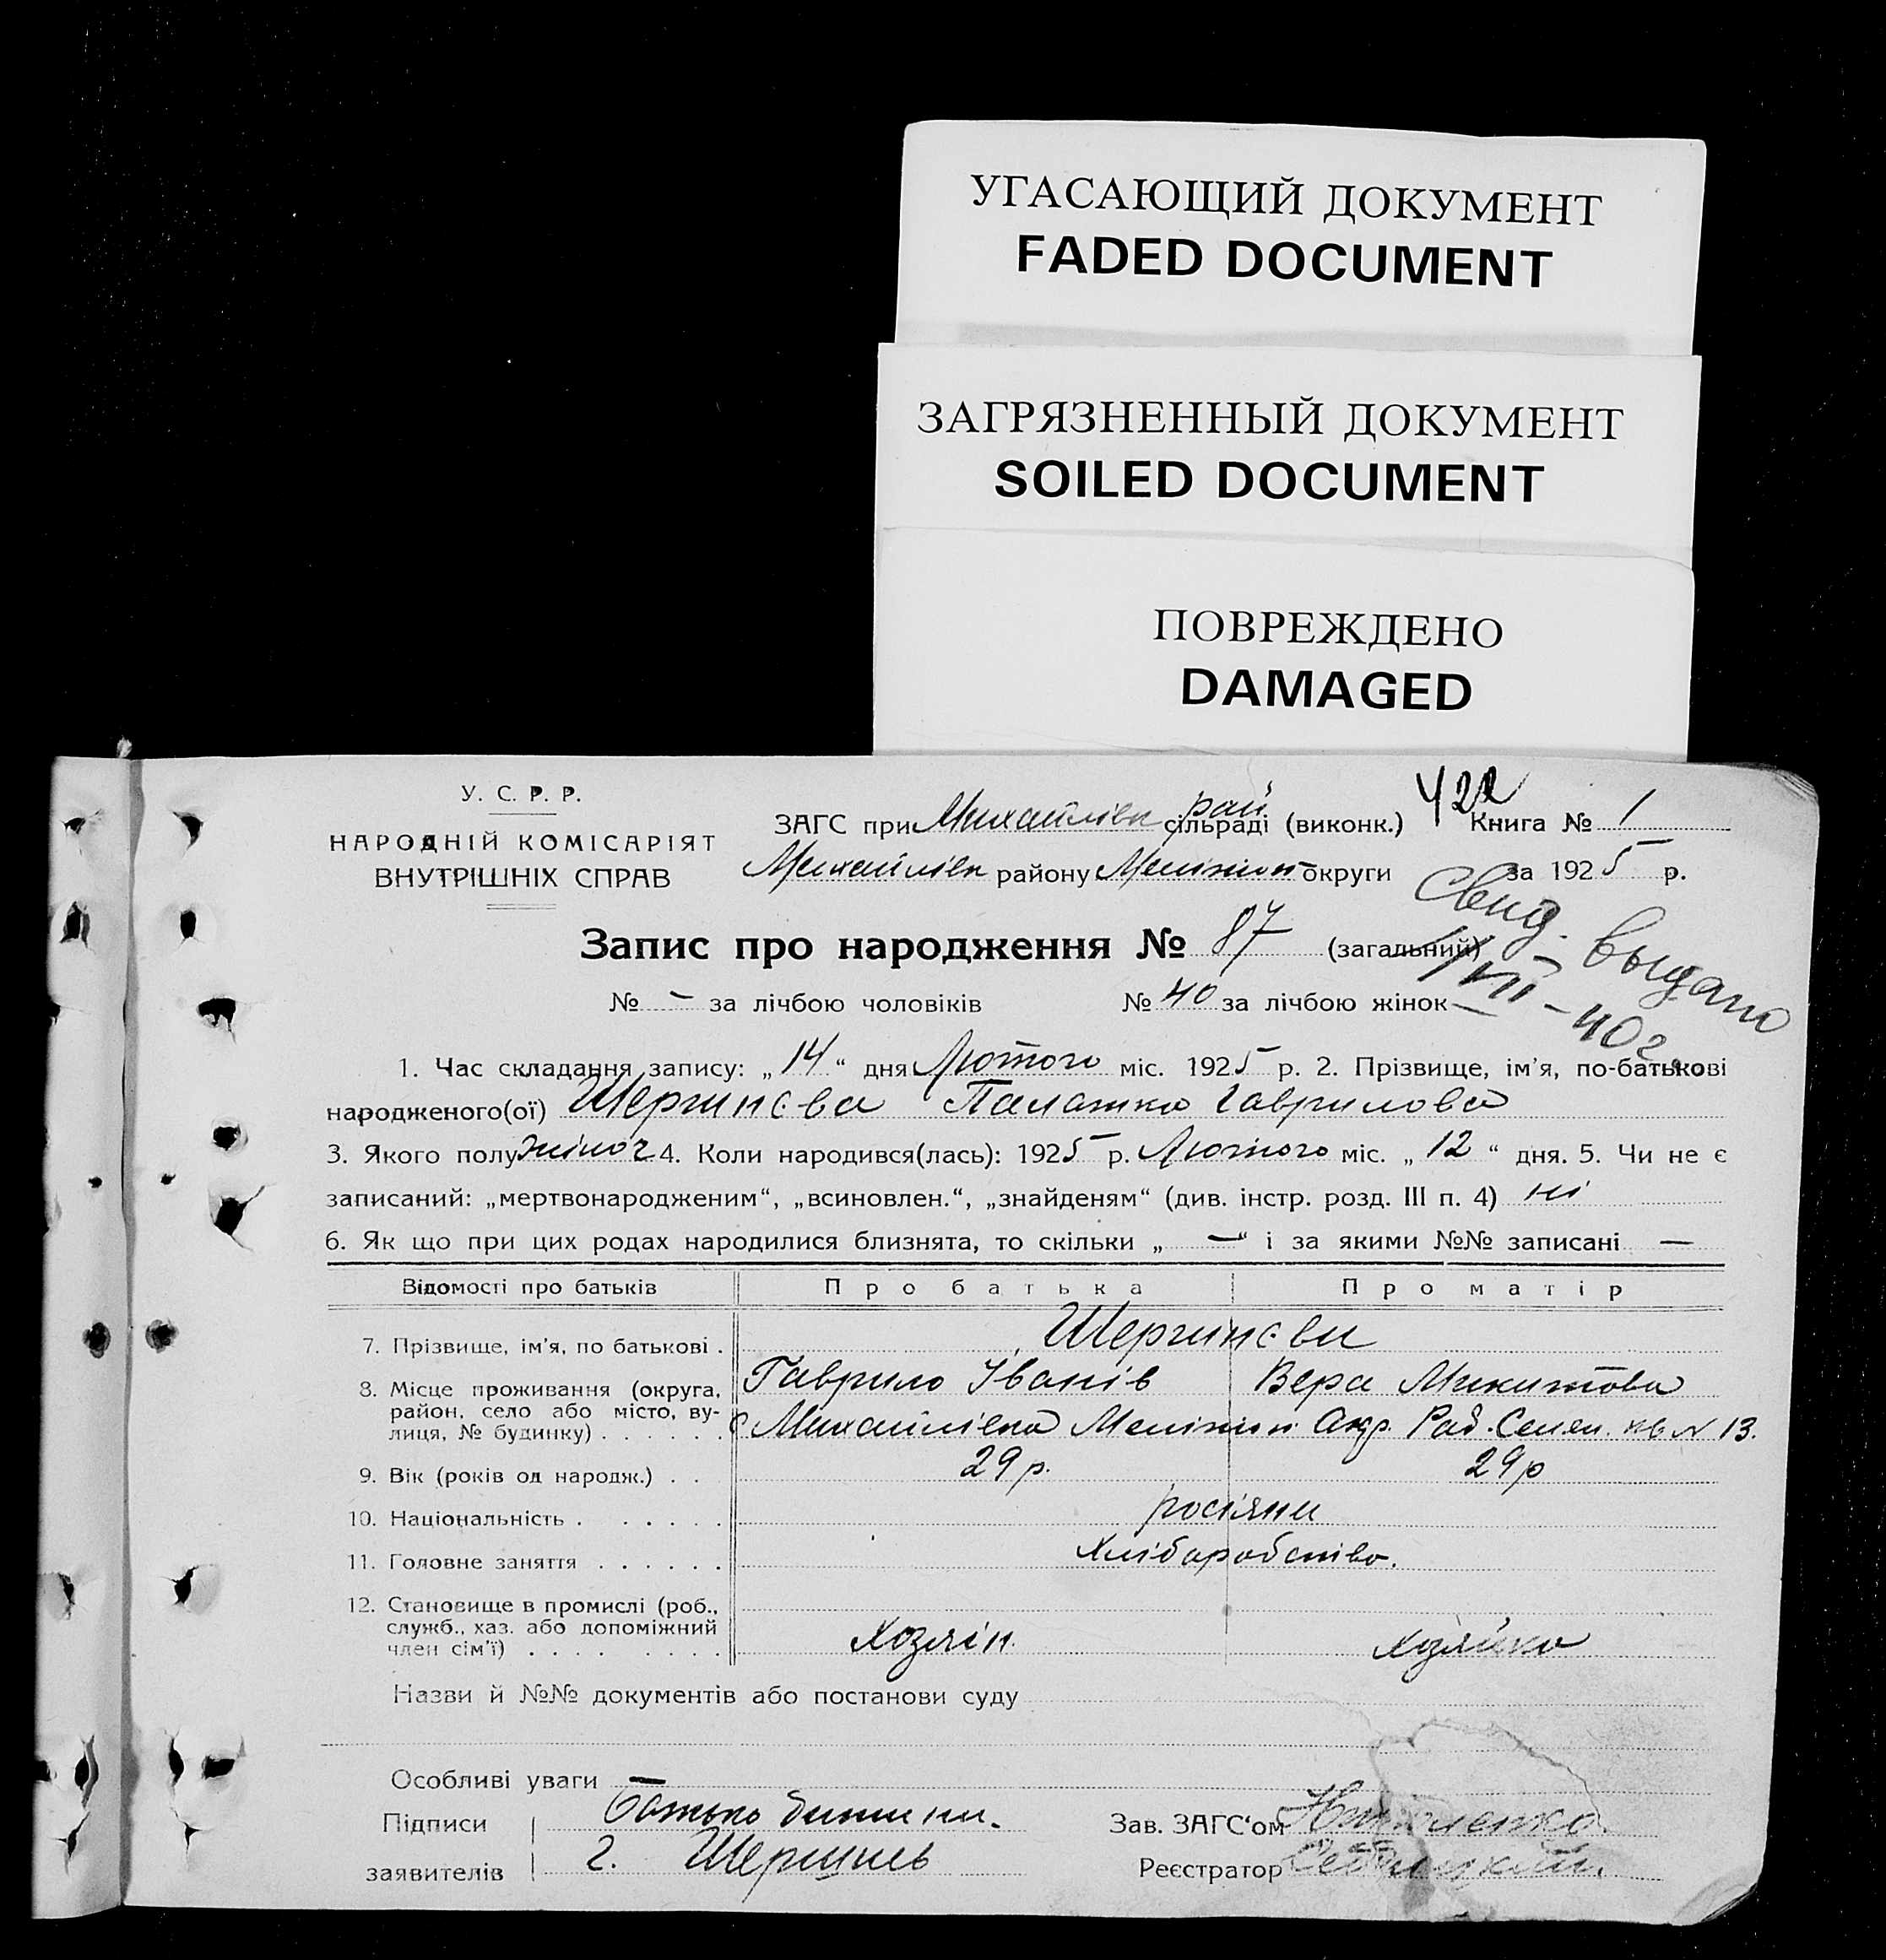 УГАСАЮЩИЙ ДОКУМЕНТ
FADED DOCUMENT
ЗАГРЯЗНЕННЫЙ ДОКУМЕНТ
SOILED DOCUMENT
ПОВРЕЖДЕНО
DAMAGED
У. С. Р. Р.
НАРОДНІЙ КОМІСАРІЯТ
ВНУТРІШНІХ СПРАВ
422
ЗАГС при Михайлівк рай сільраді (виконк.) Книга № 1
Михайлівк району Мелітоп округи за 1925 р.
Свид. выдано
VII-40г.
Запис про народження № 87 (загальний)
№ - за лічбою чоловіків № 40 за лічбою жінок
1. Час складання запису: „14“ дня Лютого міс. 1925 р. 2. Прізвище, ім'я, по-батькові
народженого(ої) Палажка Гаврилова
3. Якого полу жіноч 4. Коли народився(лась): 1925 р. Лютого міс. „12“ дня. 5. Чи не є
записаний: „мертвонародженим“, „всиновлен.“, „знайденям“ (див. інстр. розд. III п. 4) ні
6. Як що при цих родах народилися близнята, то скільки „—“ і за якими №№ записані —
Відомості про батьків Про батька Про матір
7. Прізвище, ім'я, по батькові .
Гаврило Іванів Вера Микитова
8. Місце проживання (округа,
район, село або місто, ву-
лиця, № будинку) . . . . . . с Михайлівка Мелітоп Окр. Рад. Селен. кв № 13.
9. Вік (років од народж.) . . 29 р. 29 р
10. Національність . . . . . . росіяни
11. Головне заняття . . . . . . Хліборобство.
12. Становище в промислі (роб.,
служб., хаз. або допоміжний
член сім'ї) . . . . . . . . Хозяін. Хозяйка
Назви й №№ документів або постанови суду
Особливі уваги —
Підписи Батько дитини. Зав. ЗАГС'ом
заявителів Г. Реєстратор